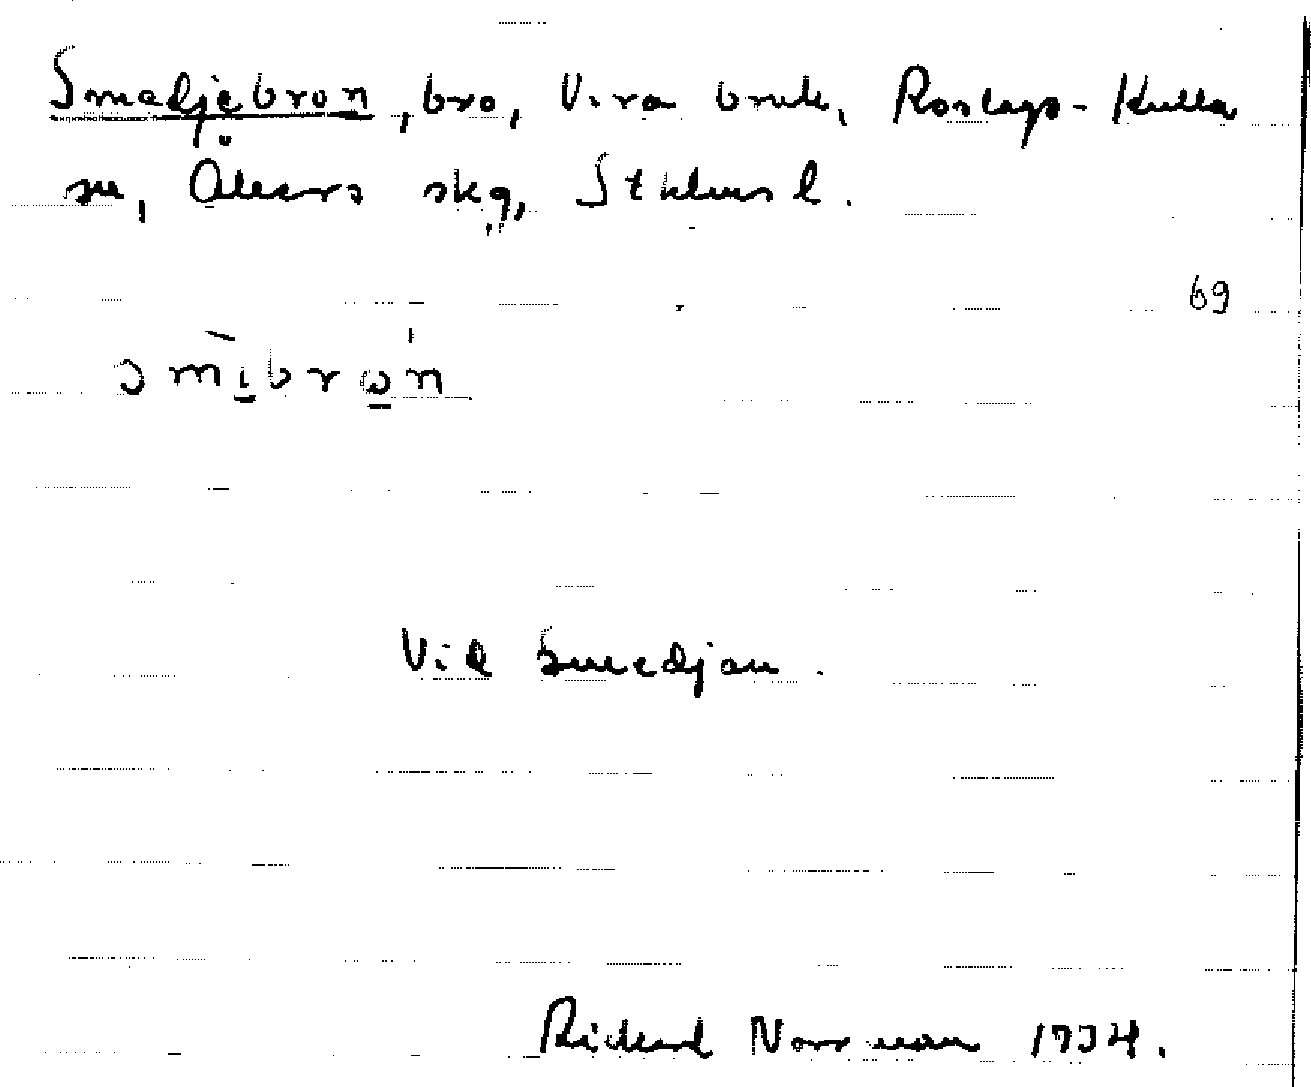 Smedjebron, bro, Vira bruk, Roslags-Kulla
sn, Åkers skg, Sthlms l.
69
smibron
Vid Smedjan.
Richard Norrman 1934.